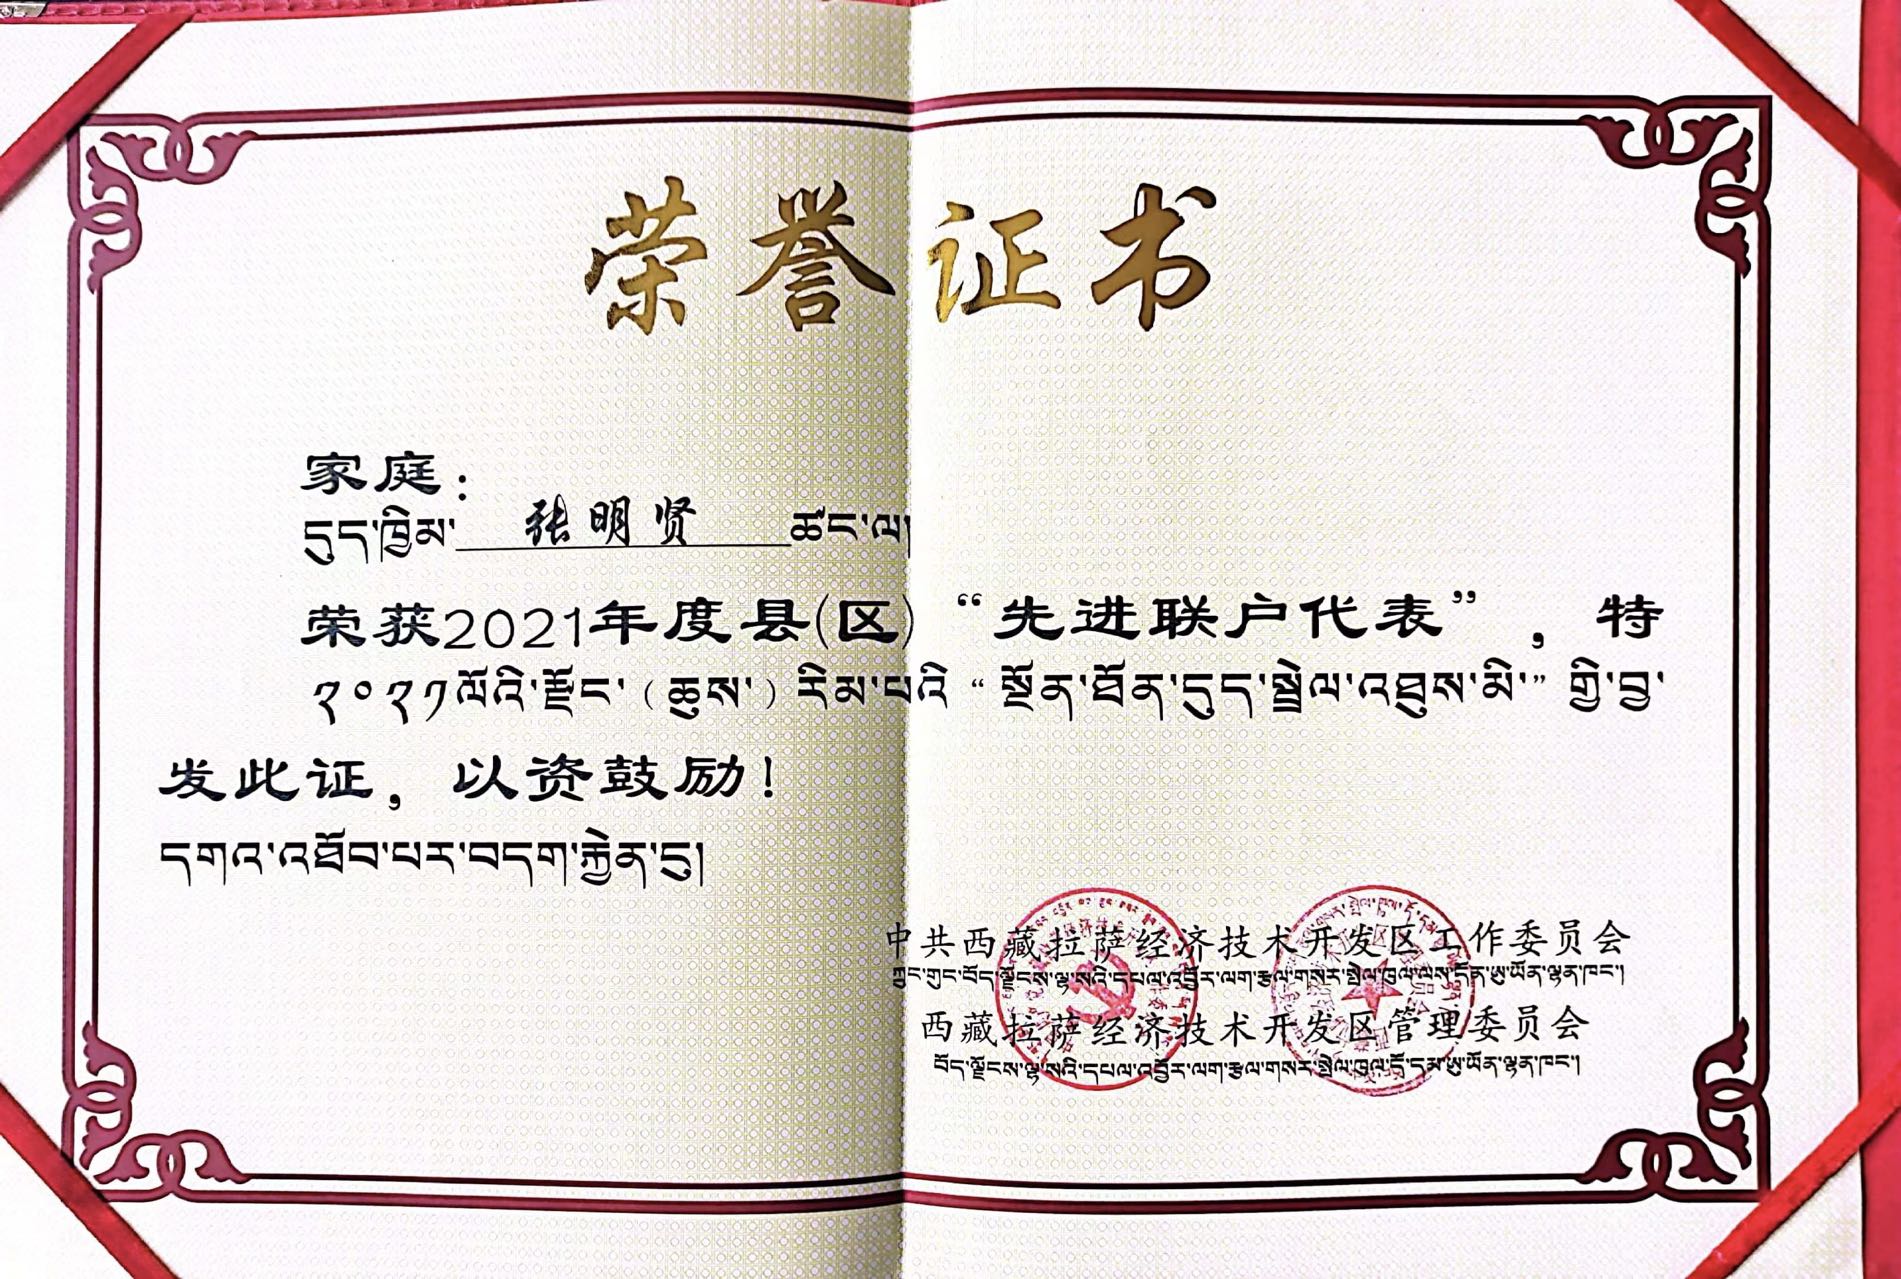 荣誉证书
家庭：
དུད་ཁྱིམ་ 张明贤 ཚང་ལ།
荣获2021年度县(区)“先进联户代表”，特
༢༠༢༡ལོའི་རྫོང་（ཆུས་）རིམ་པའི་“སྔོན་ཐོན་དུད་སྦྲེལ་འཐུས་མི་”གྱི་བྱ་
发此证，以资鼓励！
དགའ་འཐོབ་པར་བདག་རྐྱེན་དུ།
中共西藏拉萨经济技术开发区工作委员会
ཀྲུང་གུང་བོད་ལྗོངས་ལྷ་སའི་དཔལ་འབྱོར་ལག་རྩལ་གསར་སྤེལ་ཁུལ་ལས་དོན་ཨུ་ཡོན་ལྷན་ཁང་།
西藏拉萨经济技术开发区管理委员会
བོད་ལྗོངས་ལྷ་སའི་དཔལ་འབྱོར་ལག་རྩལ་གསར་སྤེལ་ཁུལ་དོ་དམ་ཨུ་ཡོན་ལྷན་ཁང་།